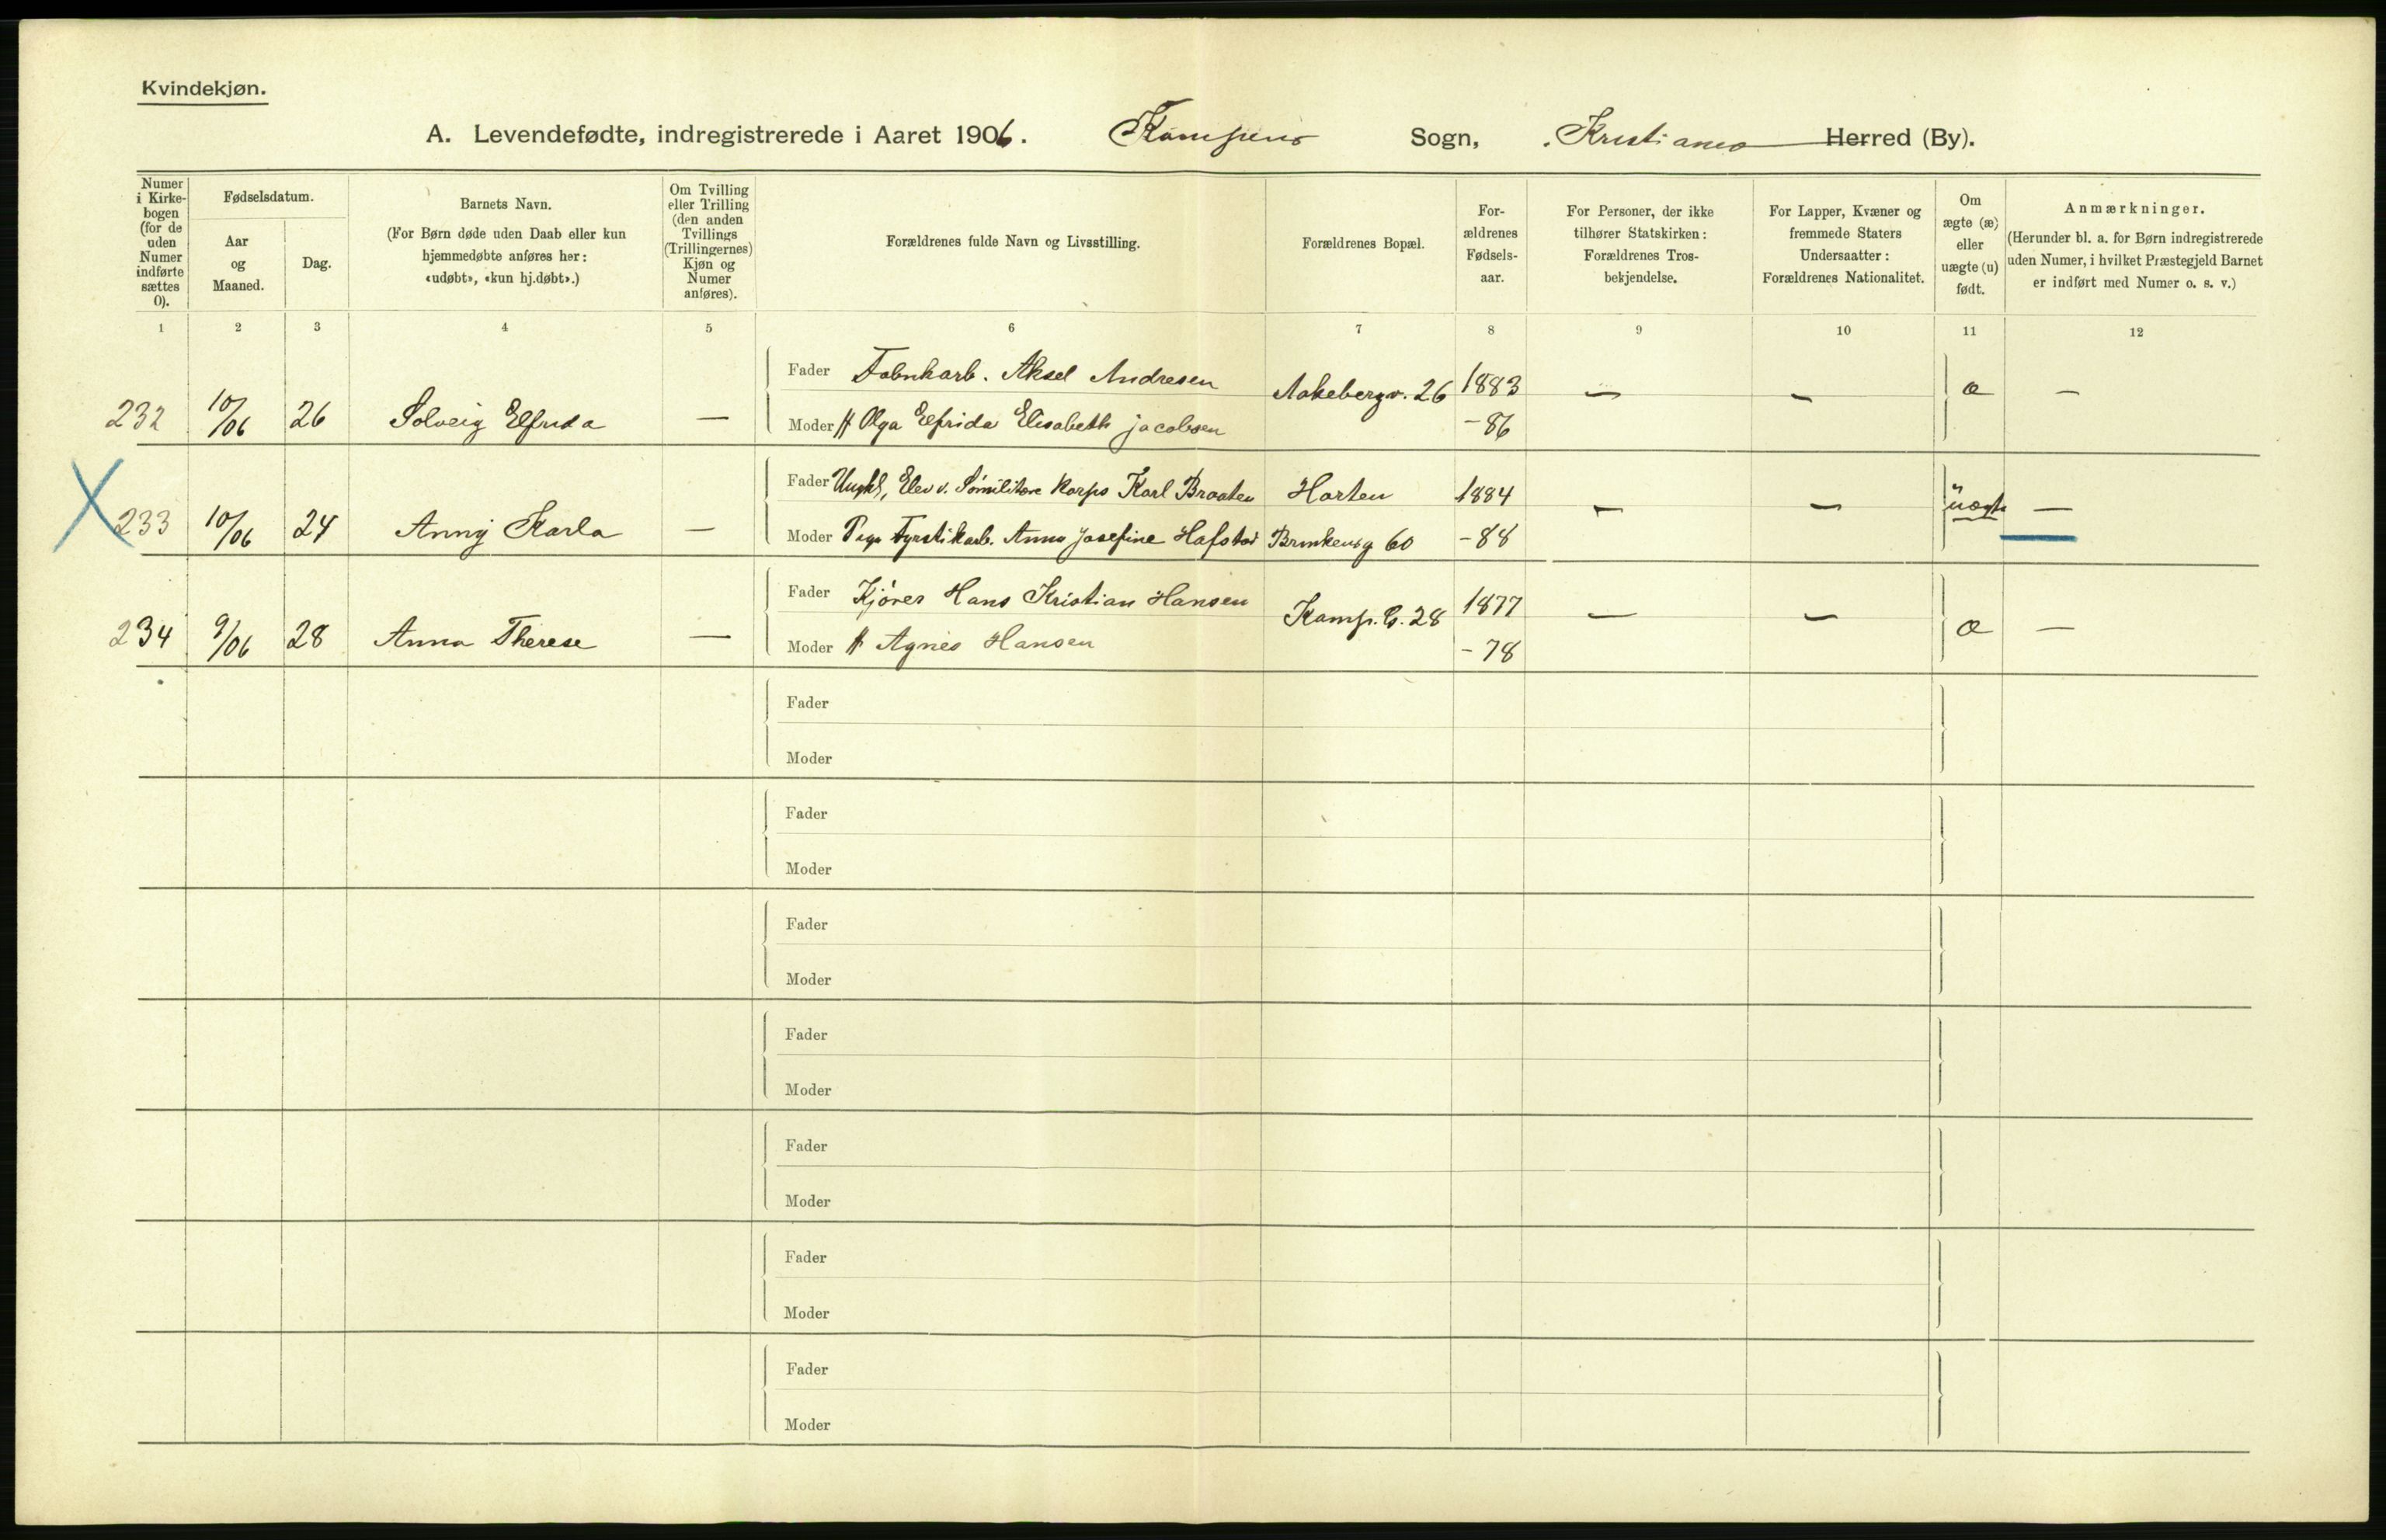 Kvindekjøn.
A. Levendefødte, indregistrerede i Aaret 1906. Kampens Sogn, Kristiania Herred (By).
Numer i Kirkebogen (for de uden Numer indførte sættes 0).
Fødselsdatum.
Aar og Maaned.
Dag.
Barnets Navn.
(For Børn døde uden Daab eller kun hjemmedøbte anføres her: «udøbt», «kun hj.døbt».)
Om Tvilling eller Trilling (den anden Tvillings (Trillingernes) Kjøn og Numer anføres).
Forældrenes fulde Navn og Livsstilling.
Forældrenes Bopæl.
For-ældrenes Fødsels-aar.
For Personer, der ikke tilhører Statskirken: Forældrenes Tros-bekjendelse.
For Lapper, Kvæner og fremmede Staters Undersaatter: Forældrenes Nationalitet.
Om ægte (æ) eller uægte (u) født.
Anmærkninger.
(Herunder bl. a. for Børn indregistrerede uden Numer, i hvilket Præstegjeld Barnet er indført med Numer o. s. v.)
1 2 3 4 5 6 7 8 9 10 11 12
Fader Fabrikarb. Aksel Andresen Aakebergv. 26 1883 — — æ —
232 10/06 26 Solveig Elfrida — Moder H Olga Elfrida Elisabeth Jacobsen - 86
Fader Ungk, Elev v. Sömilitære Korps Karl Braaten Horten 1884 — — uægte —
X 233 10/06 24 Anny Karla — Moder Pige Fyrstikarb. Anna Josefine Hafstad Brinkensg 60 - 88
Fader Kjører Hans Kristian Hansen Kamp. G. 28 1877 — — æ —
234 9/06 28 Anna Therese — Moder H Agnes Hansen - 78
Fader
Moder
Fader
Moder
Fader
Moder
Fader
Moder
Fader
Moder
Fader
Moder
Fader
Moder